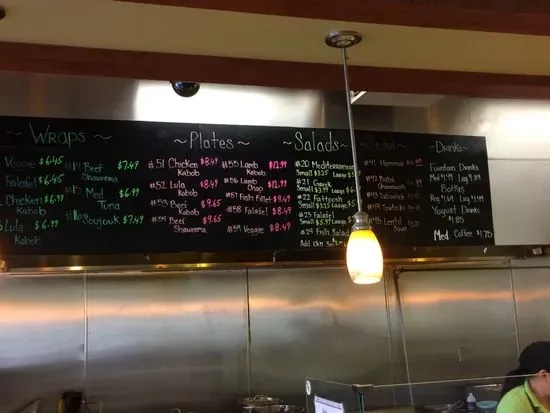 ~ WRAPS ~
Veggie $6.45
Falafel $6.45
Chicken $6.99
Kabob
Lula $6.99
Kabob
#14 Beef $7.49
Shawerma
Med. $6.99
Tuna
Soujouk $7.49
~ Plates ~
#51 Chicken $8.49
Kabob
#52 Lula $8.49
Kabob
#53 Beef $9.65
Kabob
#54 Beef $9.65
Shawerma
#55 Lamb $12.99
Kabob
#56 Lamb $12.99
Chop
#57 Fish Fillet $9.49
#58 Falafel $8.49
#59 Veggie $8.49
~ Salads ~
#20 Mediterranean
Small $3.25 Large
#21 Greek
Small $3.99 Large
#22 Fattoush
Small $3.25 Large
#23 Falafel
Small $3.25 Large
#24 Fish Salad
Add ckn
#41 Hommus
#42 Baba
Ghannoush
#43 Tabouleh
#44 Tzatziki
#45 Lentil
Soup
~ Drinks ~
Fountain Drinks
Med $1.69 Large $1.89
Bottles
Reg $1.69
Yogurt Drinks
$1.85
Med. Coffee $1.70